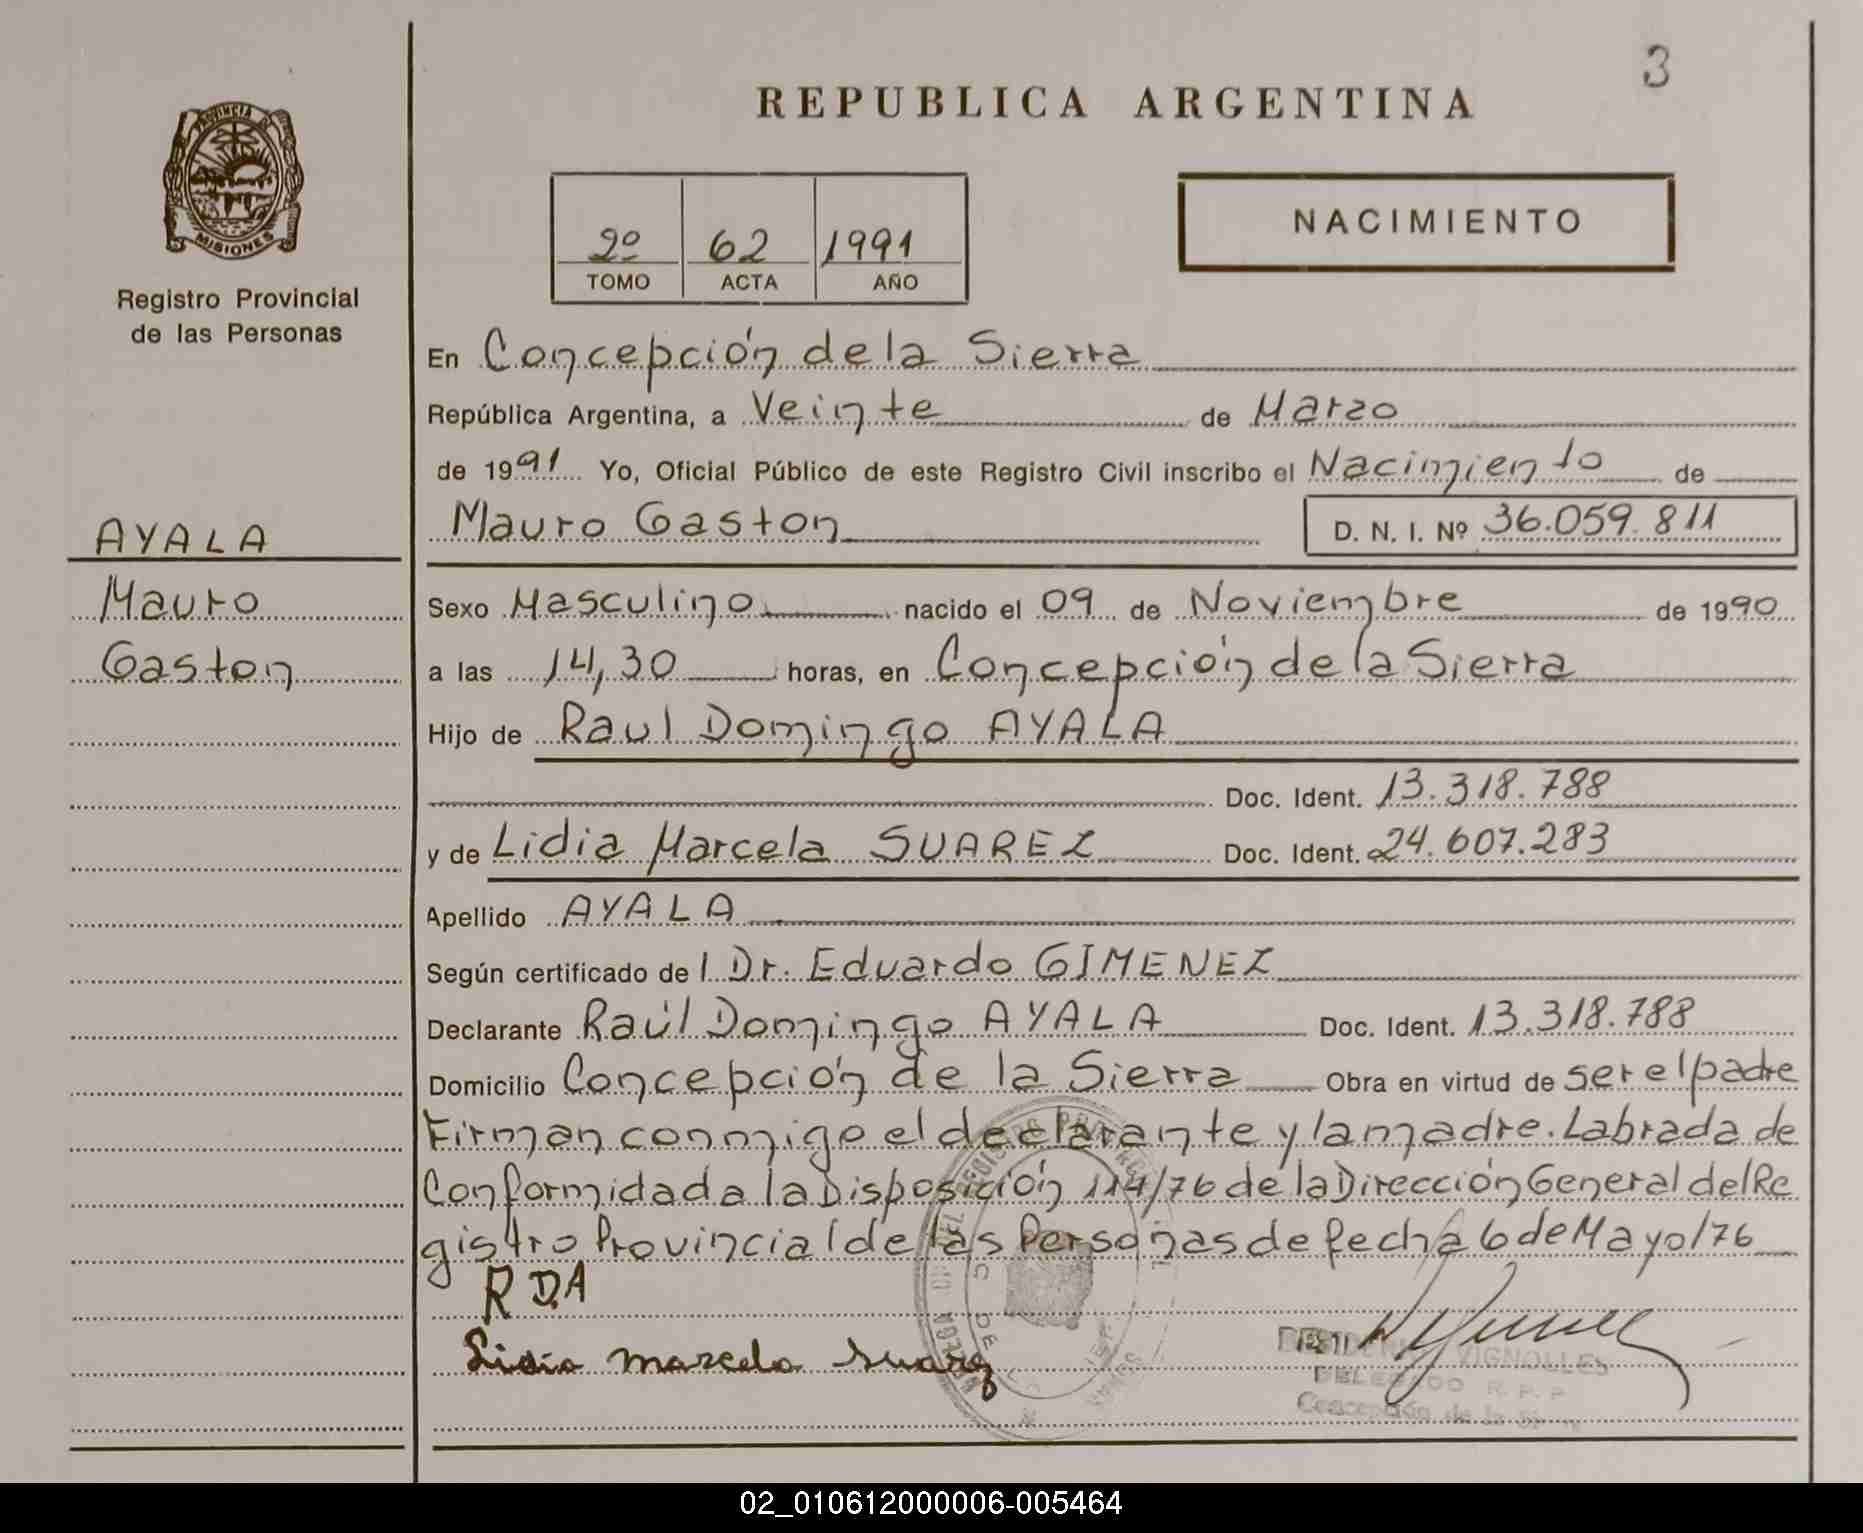 3
REPUBLICA ARGENTINA
PROVINCIA DE
MISIONES
Registro Provincial
de las Personas
2º 62 1991
TOMO ACTA AÑO
NACIMIENTO
En Concepción de la Sierra
República Argentina, a Veinte de Marzo
de 1991 Yo, Oficial Público de este Registro Civil inscribo el Nacimiento de
Mauro Gaston D. N. I. Nº 36.059.811
AYALA
Mauro
Gaston
Sexo Masculino nacido el 09 de Noviembre de 1990
a las 14,30 horas, en Concepción de la Sierra
Hijo de Raul Domingo AYALA
Doc. Ident. 13.318.788
y de Lidia Marcela SUAREZ Doc. Ident. 24.607.283
Apellido AYALA
Según certificado del Dr. Eduardo GIMENEZ
Declarante Raúl Domingo AYALA Doc. Ident. 13.318.788
Domicilio Concepción de la Sierra Obra en virtud de ser el padre
Firman conmigo el declarante y la madre. Labrada de
Conformidad a la Disposición 114/76 de la Dirección General del Re
gistro Provincial de las Personas de fecha 6 de Mayo/76
R D.A
Lidia Marcela Suarez
VIGNOLLES
DELEGADO R. P. P
Concepción de la
02_010612000006-005464